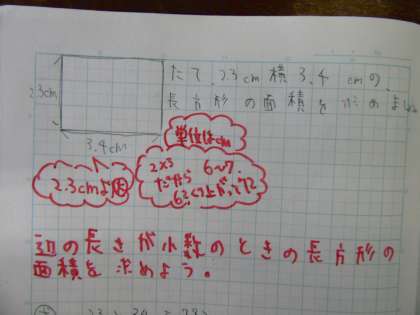 たて2.3cm横3.4cmの、
長方形の面積を求めましょう
2.3cm
3.4cm
単位はcm
2.3cmより
2×3
だから 6〜7
辺の長さが小数のときの長方形の
面積を求めよう。